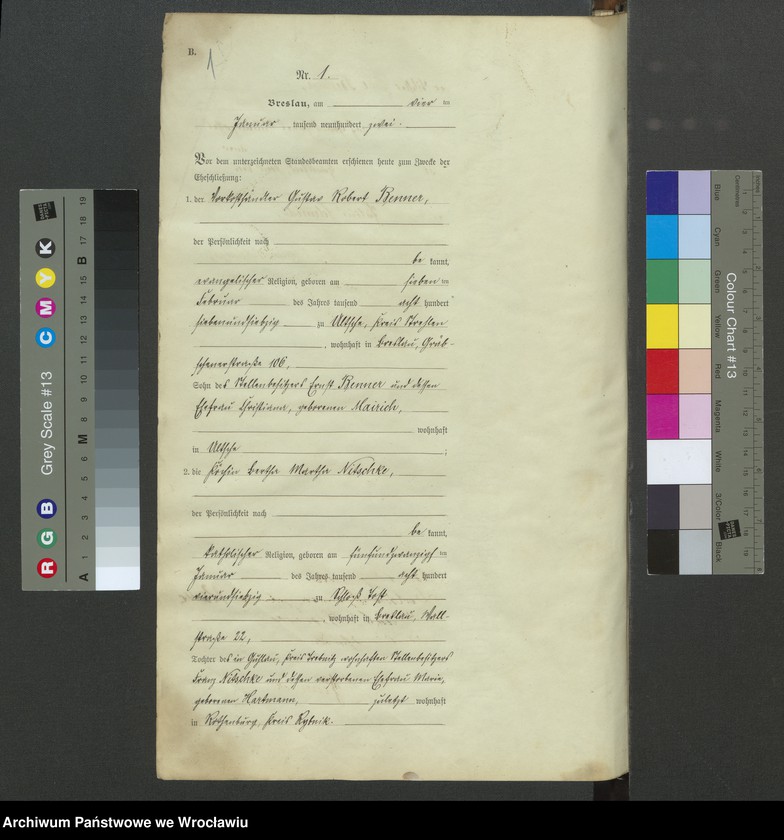 B.
1
Nr. 1.
Breslau, am vier ten
Januar tausend neunhundert zwei.
Vor dem unterzeichneten Standesbeamten erschienen heute zum Zwecke der
Eheschließung:
1. der Vorkosthändler Gustav Robert Renner,
der Persönlichkeit nach
be kannt,
evangelischer Religion, geboren am sieben ten
Februar des Jahres tausend acht hundert
siebenundsiebzig zu Ultsche, Kreis Strehlen
, wohnhaft in Breslau, Gräb-
schenerstraße 106,
Sohn des Stellenbesitzers Ernst Renner und dessen
Ehefrau Christiane, geborenen
wohnhaft
in Ultsche ;
2. die Köchin Bertha Martha Nitschke,
der Persönlichkeit nach
be kannt,
katholischer Religion, geboren am fünfundzwanzigs ten
Januar des Jahres tausend acht hundert
vierundsiebzig zu Schloß Tost
, wohnhaft in Breslau, Wall-
straße 22,
Tochter des in Guhlau, Kreis Trebnitz wohnhaften Stellenbesitzers
Franz Nitschke und dessen verstorbenen Ehefrau Marie,
geborenen Hartmann, zuletzt wohnhaft
in Rothenburg, Kreis Rybnik.
Grey Scale #13
C M Y K
R G B
A 1 2 3 4 5 6 M 8 9 10 11 12 13 14 15 B 17 18 19
Colour Chart #13
Blue
Cyan
Green
Yellow
Red
Magenta
White
3/Color
Black
Centimetres
Inches
DANES PICTA
Archiwum Państwowe we Wrocławiu